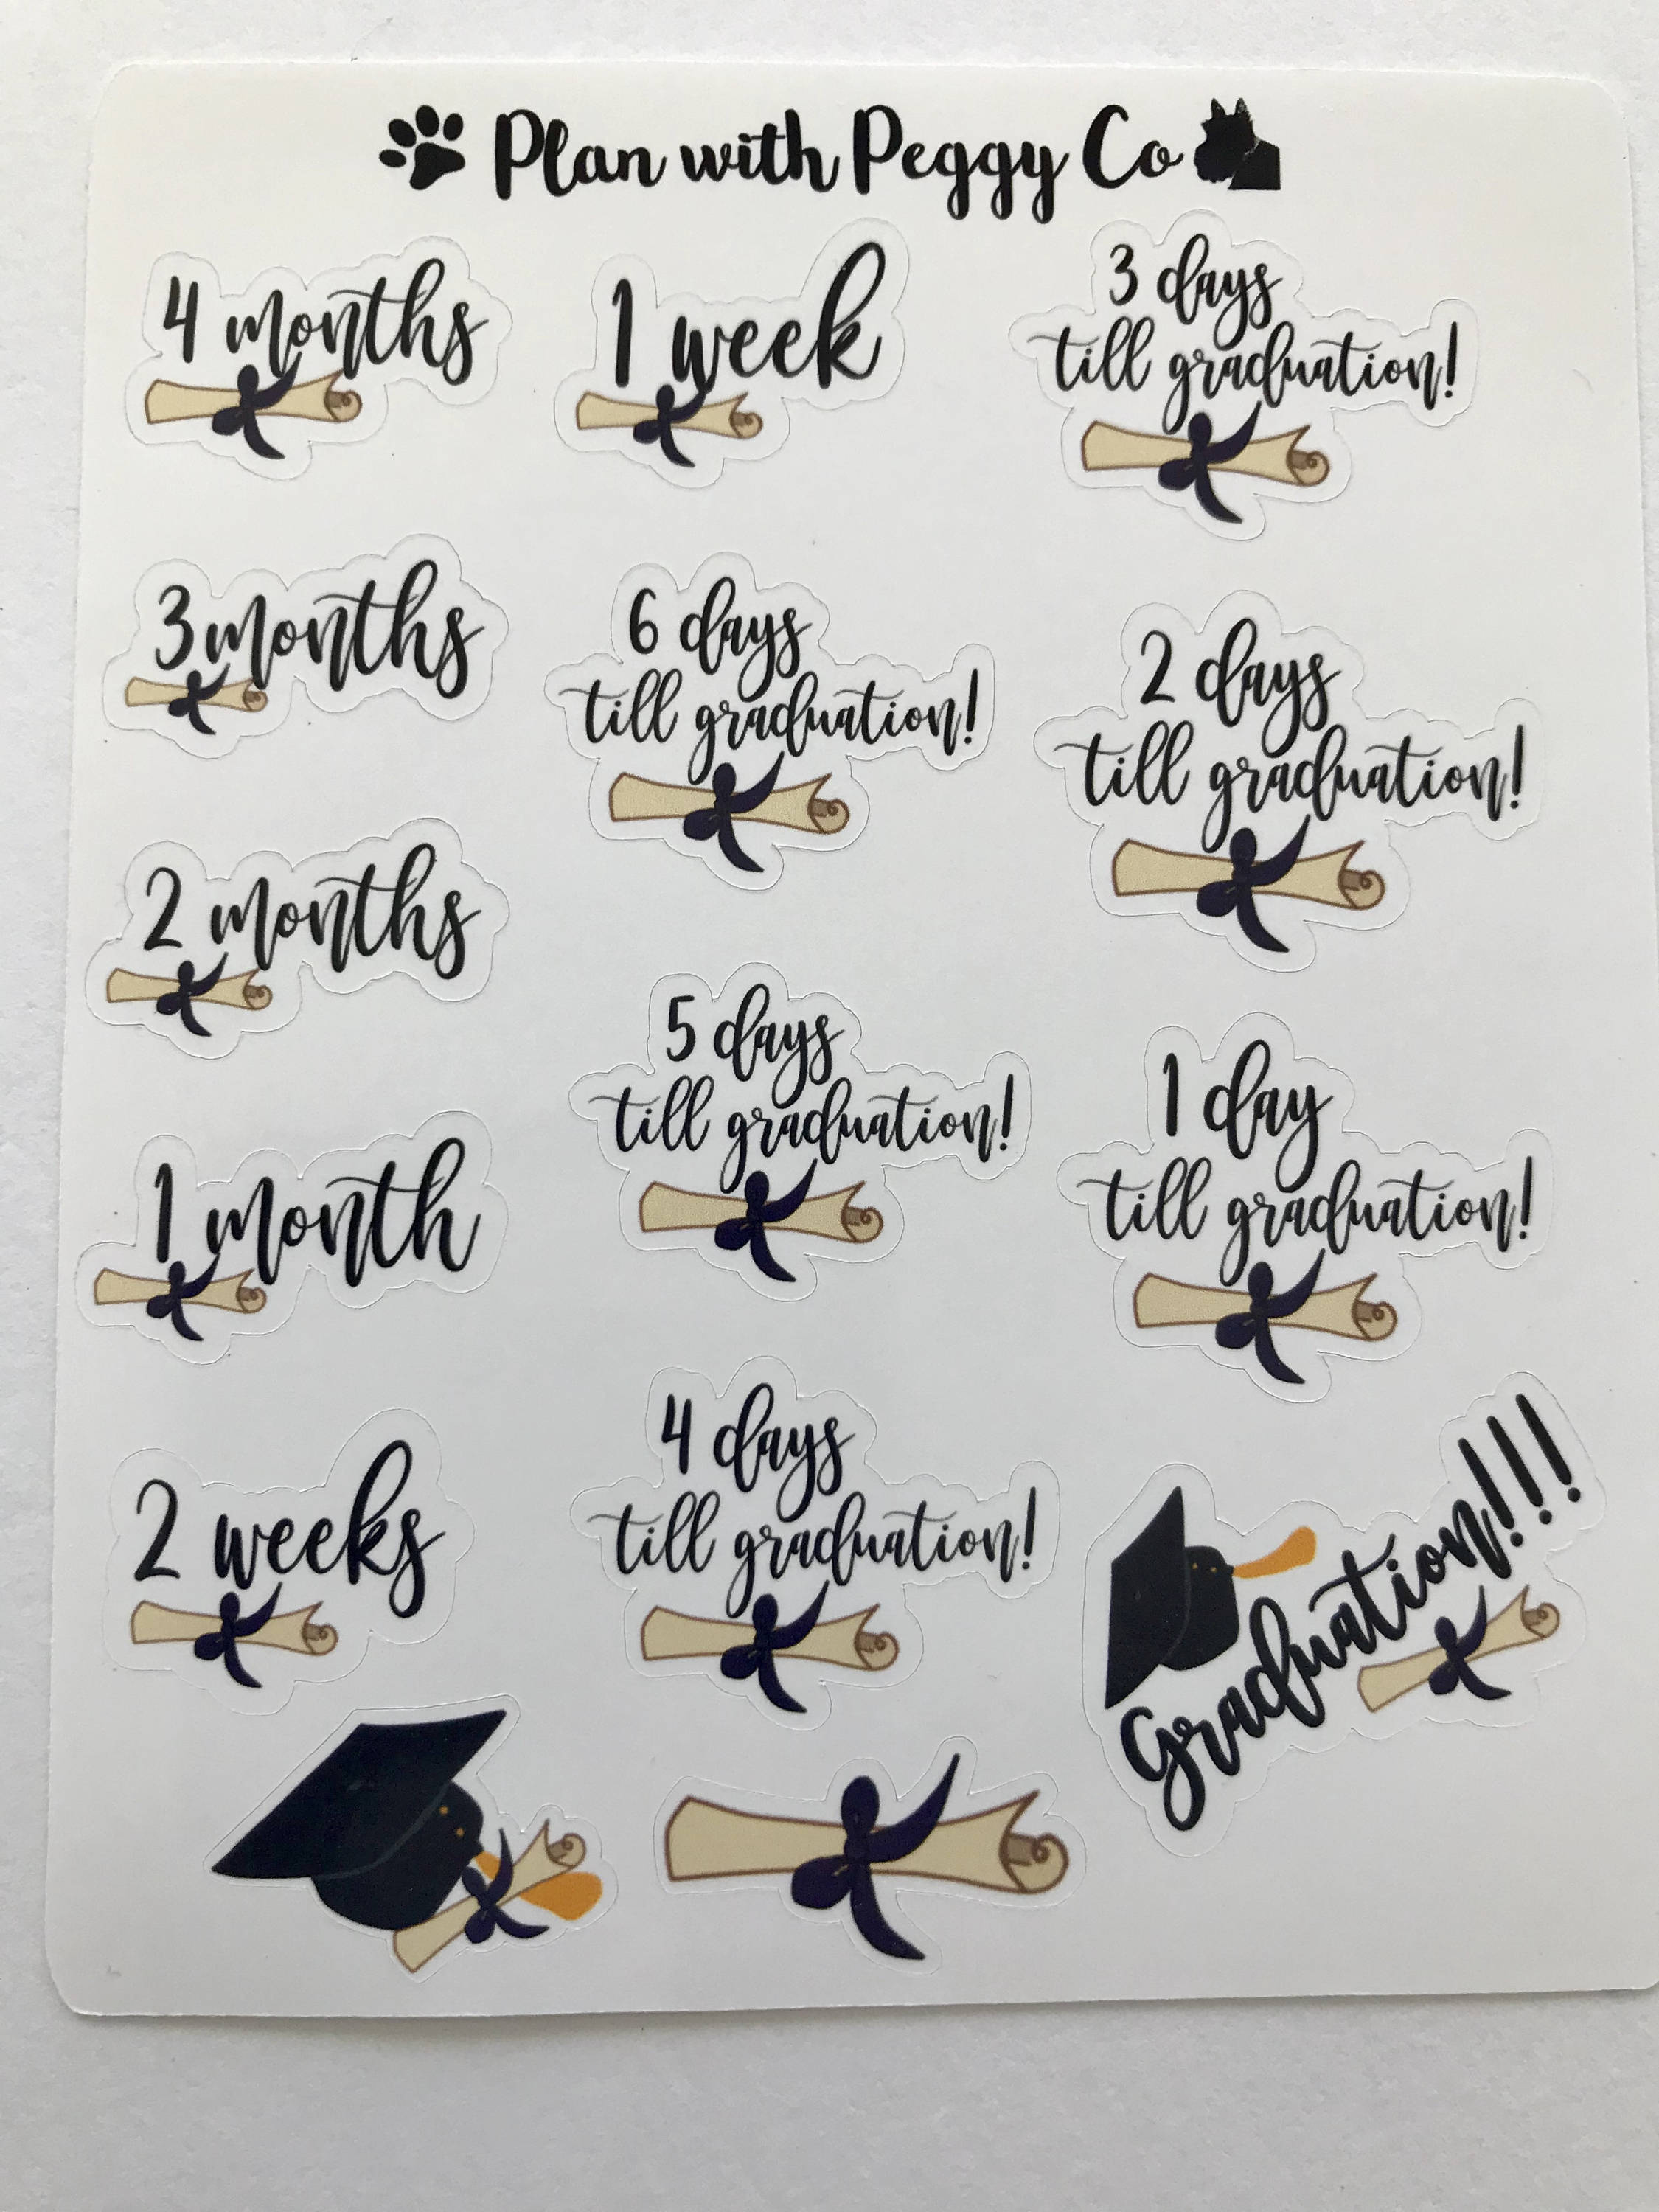 Plan with Peggy Co
4 months
3 months
2 months
1 month
2 weeks
1 week
6 days
till graduation!
5 days
till graduation!
4 days
till graduation!
3 days
till graduation!
2 days
till graduation!
1 day
till graduation!
Graduation!!!